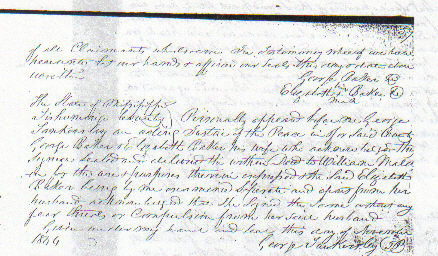 of all Claimants whatsoever In Testimony whereof we have
hereunto set our hands & affixed our seals this day & date above
written
George Baker
Elizabeth Baker
mark
The State of Mississippi
Tishomingo County Personally appeared before me George
an acting Justice of the Peace in & for said County
George Baker & Elizabeth Baker his wife who acknowledged they
Signed Sealed and delivered the within Deed to William
for the use & purposes therein expressed the Said Elizabeth
Baker being by me examined Seperate and apart from her
husband acknowledged that She Signed the Same without any
fear threats or Compulsion from her said husband
Given under my hand and seal this day of
George